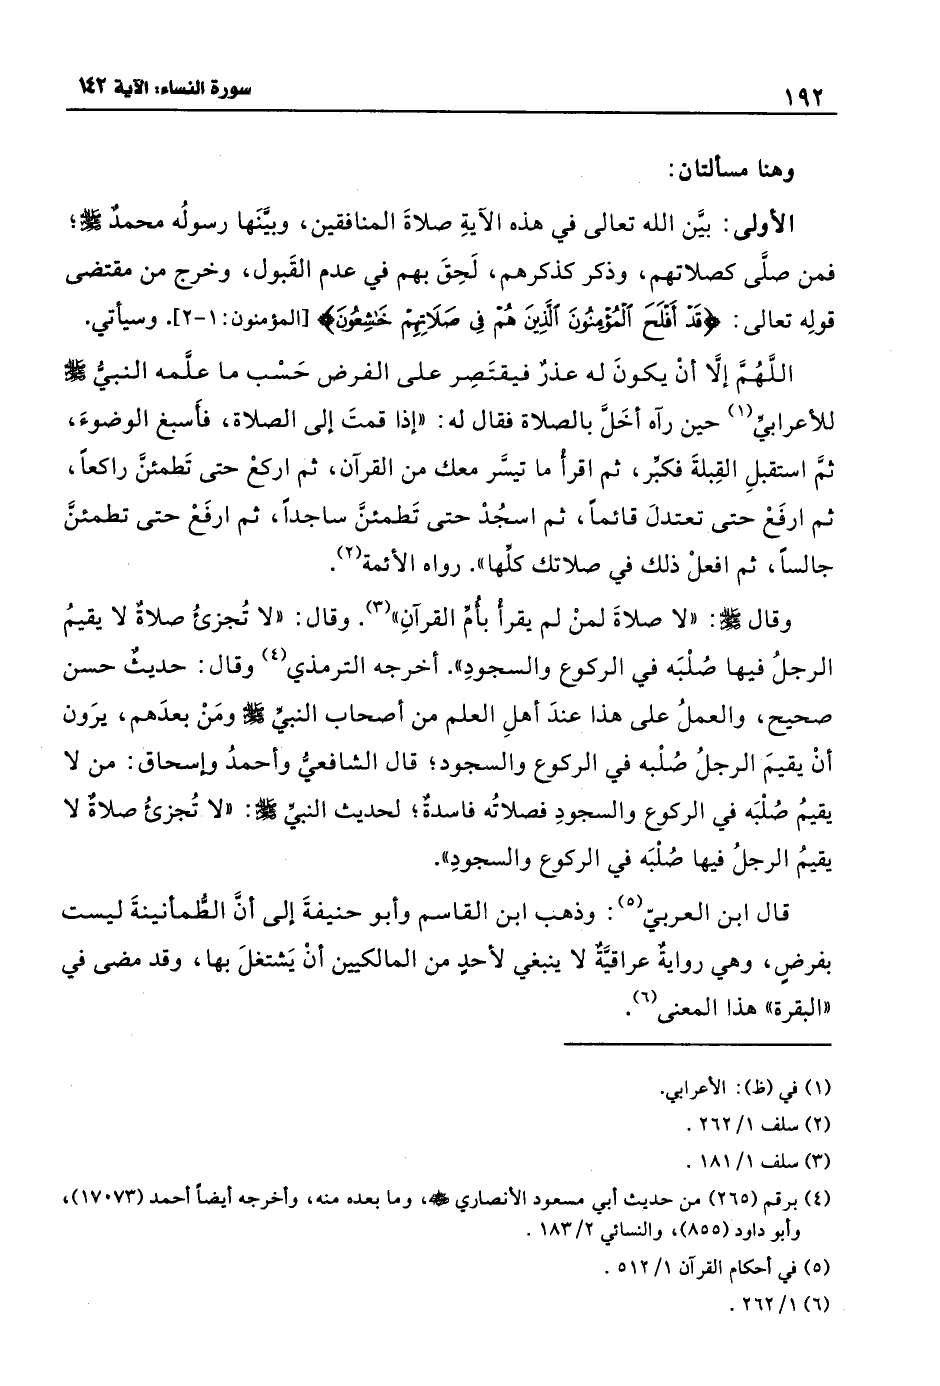 ١٩٢
سورة النساء: الآية ١٤٢
وهنا مسألتان:
الأولى: بيَّن الله تعالى في هذه الآيةِ صلاةَ المنافقين، وبيَّنَها رسولُه محمدٌ ﷺ؛
فمن صلَّى كصلاتهم، وذكر كذكرهم، لَحِقَ بهم في عدم القَبول، وخرج من مقتضى
قولِه تعالى: ﴿قَدْ أَفْلَحَ ٱلْمُؤْمِنُونَ ٱلَّذِينَ هُمْ فِى صَلَاتِهِمْ خَٰشِعُونَ﴾ [المؤمنون: ١-٢]. وسيأتي.
اللَّهُمَّ إلَّا أنْ يكونَ له عذرٌ فيقتَصِر على الفرض حَسْب ما علَّمه النبيُّ ﷺ
للأعرابيِّ(١) حين رآه أخَلَّ بالصلاة فقال له: «إذا قمتَ إلى الصلاة، فأَسبِغ الوضوءَ،
ثمَّ استقبلِ القِبلةَ فكبِّر، ثم اقرأْ ما تيسَّر معك من القرآن، ثم اركعْ حتى تَطمئنَّ راكعاً،
ثم ارفَعْ حتى تعتدلَ قائماً، ثم اسجُدْ حتى تَطمئنَّ ساجداً، ثم ارفَعْ حتى تطمئنَّ
جالساً، ثم افعلْ ذلك في صلاتك كلِّها». رواه الأئمة(٢).
وقال ﷺ: «لا صلاةَ لمنْ لم يقرأْ بأُمِّ القرآنِ»(٣). وقال: «لا تُجزئُ صلاةٌ لا يقيمُ
الرجلُ فيها صُلْبَه في الركوع والسجودِ». أخرجه الترمذي(٤) وقال: حديثٌ حسن
صحيح، والعملُ على هذا عندَ أهلِ العلم من أصحاب النبيِّ ﷺ ومَنْ بعدَهم، يرَون
أنْ يقيمَ الرجلُ صُلْبه في الركوع والسجود؛ قال الشافعيُّ وأحمدُ وإسحاق: من لا
يقيمُ صُلْبَه في الركوع والسجودِ فصلاتُه فاسدةٌ؛ لحديث النبيِّ ﷺ: «لا تُجزئُ صلاةٌ لا
يقيمُ الرجلُ فيها صُلْبَه في الركوع والسجودِ».
قال ابن العربيّ(٥): وذهب ابن القاسم وأبو حنيفةَ إلى أنَّ الطُّمأنينةَ ليست
بفرضٍ، وهي روايةٌ عراقيَّةٌ لا ينبغي لأحدٍ من المالكيين أنْ يَشتغلَ بها، وقد مضى في
«البقرة» هذا المعنى(٦).
(١) في (ظ): الأعرابي.
(٢) سلف ١/ ٢٦٢ .
(٣) سلف ١/ ١٨١ .
(٤) برقم (٢٦٥) من حديث أبي مسعود الأنصاري ﷺ، وما بعده منه، وأخرجه أيضاً أحمد (١٧٠٧٣)،
وأبو داود (٨٥٥)، والنسائي ٢/ ١٨٣ .
(٥) في أحكام القرآن ١/ ٥١٢ .
(٦) ١/ ٢٦٢ .